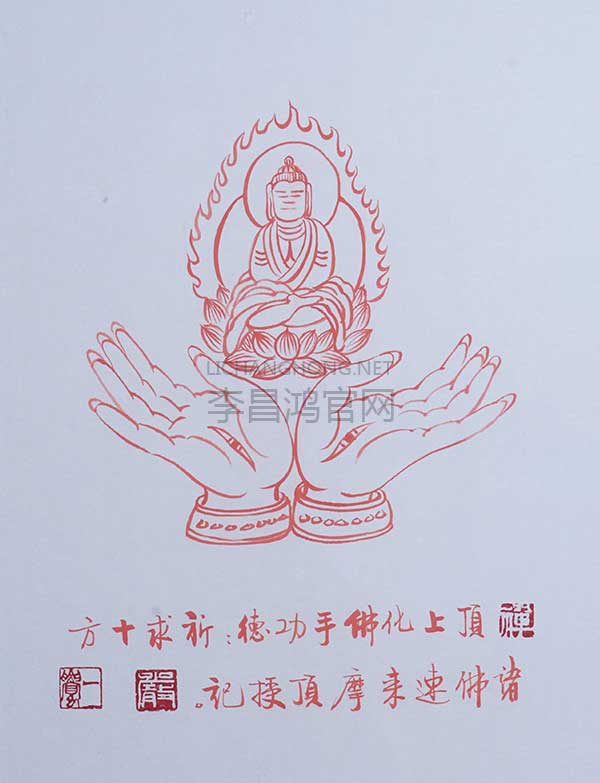 LICHANGHONG.NET
李昌鸿官网
頂上化佛手功德：祈求十方
諸佛速来摩頂授記。